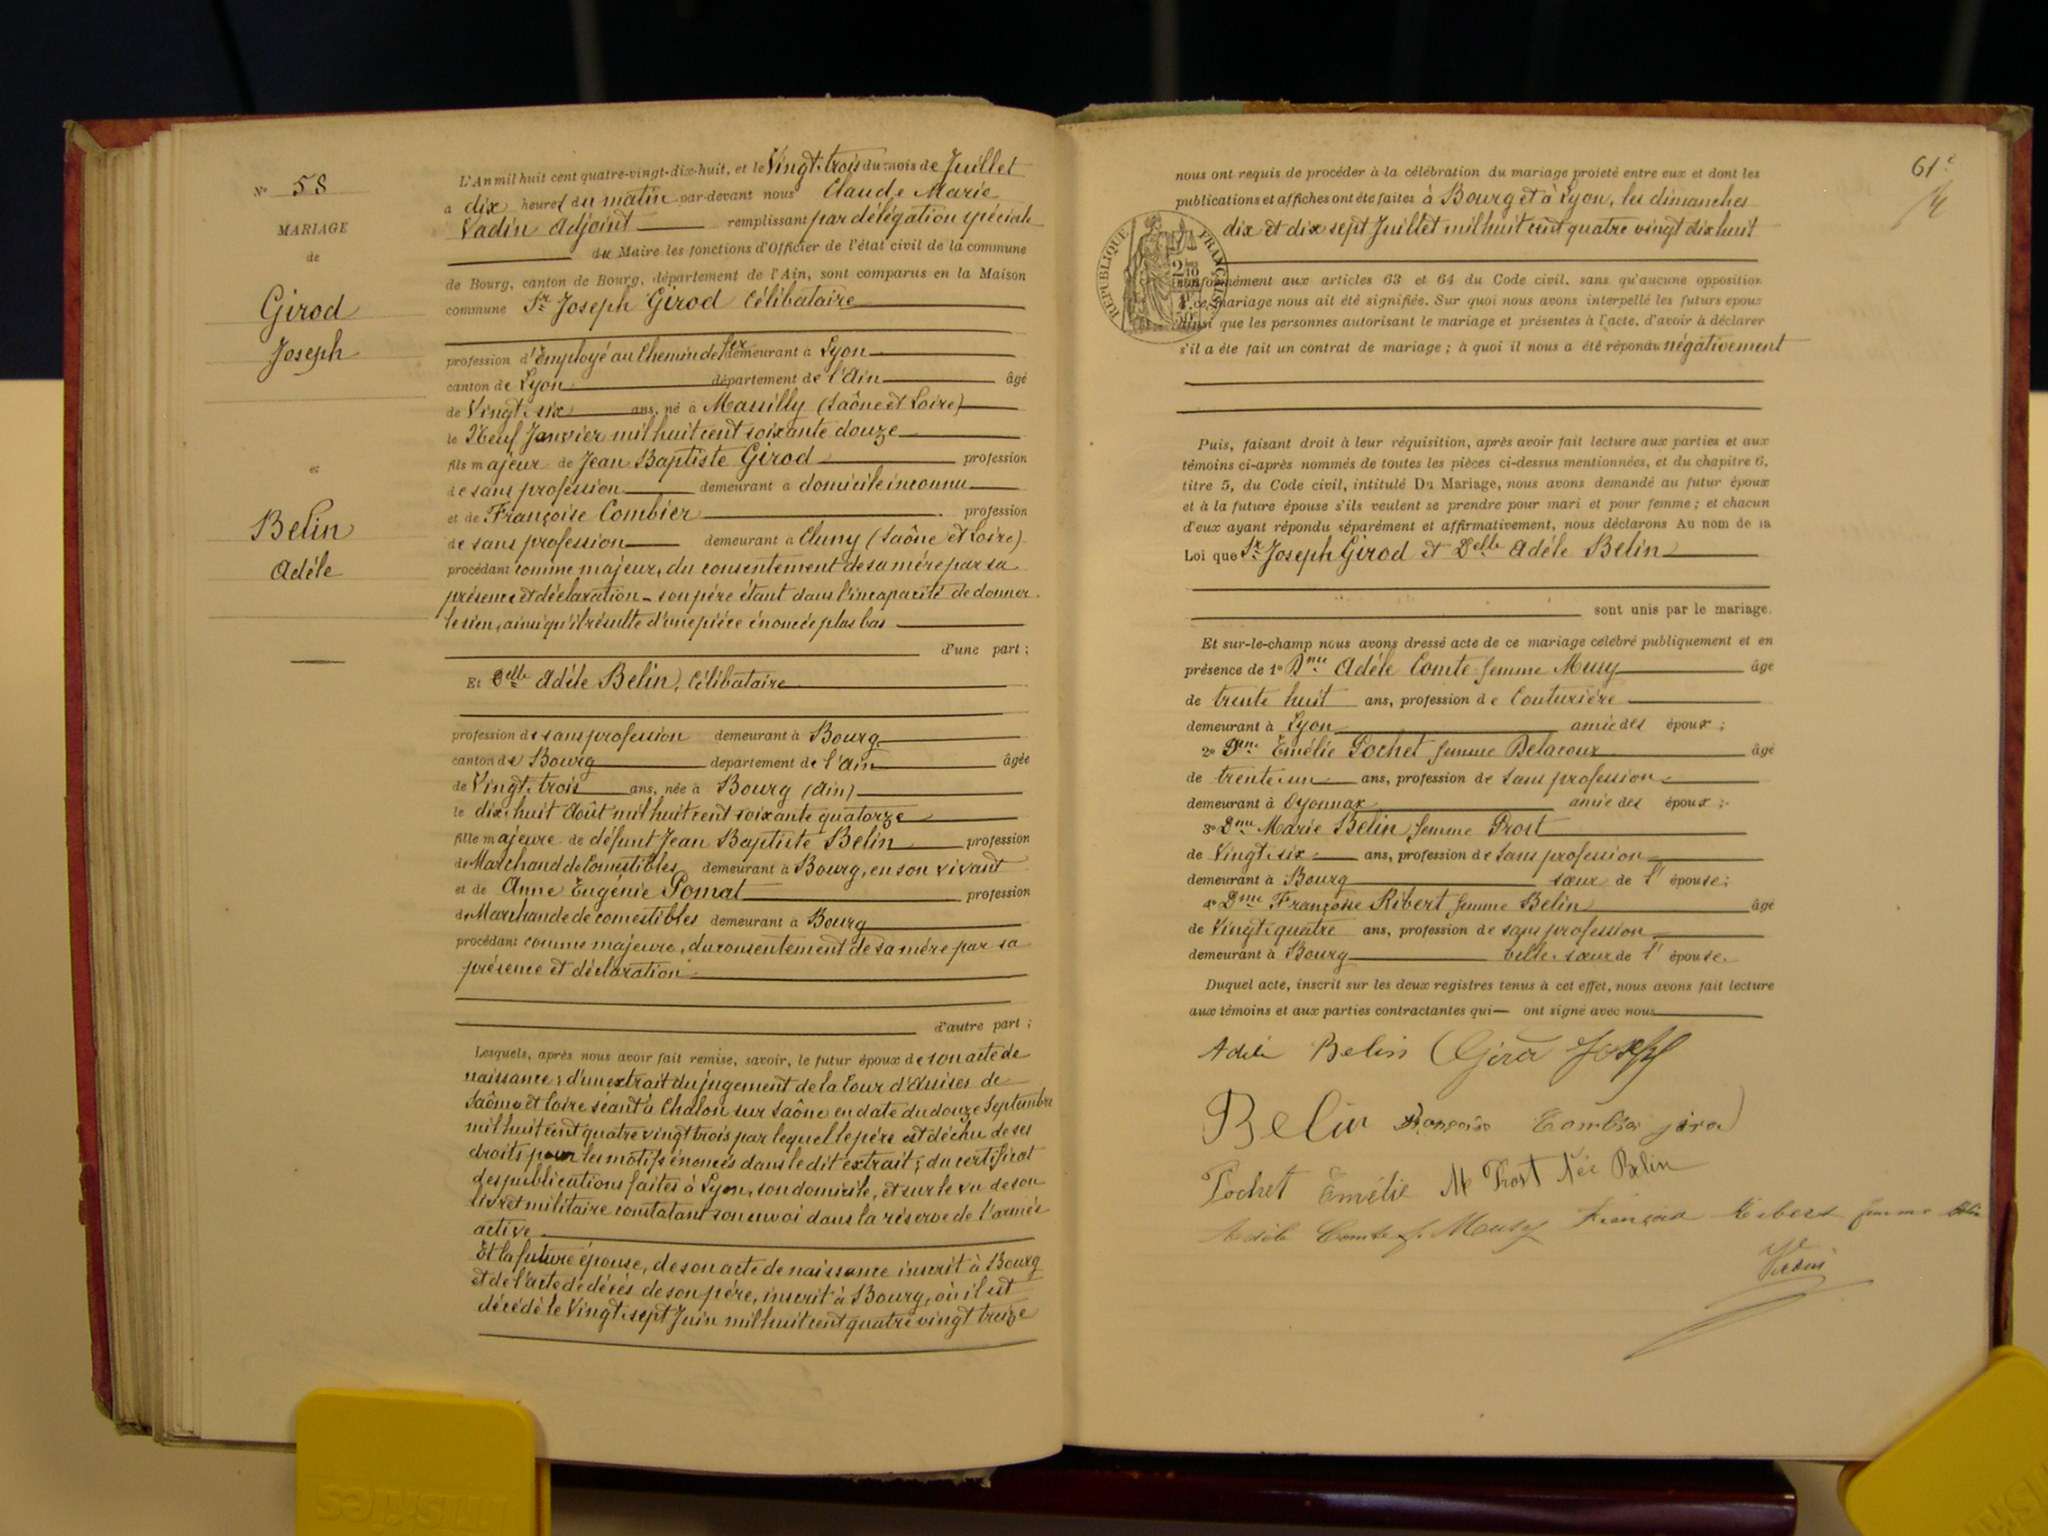 N° 58
MARIAGE
de
Girod
Joseph
et
Belin
Adèle
L'An mil huit cent quatre-vingt-dix-huit, et le Vingt-trois du mois de Juillet
a dix heures du matin par-devant nous Claude Marie
Vadin Adjoint remplissant par délégation spéciale
du Maire les fonctions d'Officier de l'état civil de la commune
de Bourg, canton de Bourg, département de l'Ain, sont comparus en la Maison
commune Sr Joseph Girod Célibataire
profession d'Employé au Chemin de fer demeurant à Lyon
canton de Lyon département de l'Ain âgé
de Vingt-six ans, né à Massilly (Saône et Loire)
le Neuf Janvier mil huit cent soixante douze
fils majeur de Jean Baptiste Girod profession
de sans profession demeurant a domicile inconnu
et de Françoise Combier profession
de sans profession demeurant à Cluny (Saône et Loire)
procédant comme majeur, du consentement de sa mère par sa
présence et déclaration - son père étant dans l'incapacité de donner
le sien, ainsi qu'il résulte d'une pièce énoncée plus bas
d'une part ;
Et Delle Adèle Belin, Célibataire
profession de sans profession demeurant à Bourg
canton de Bourg département de l'Ain âgée
de Vingt-trois ans, née à Bourg (Ain)
le dix-huit Août mil huit cent soixante quatorze
fille majeure de défunt Jean Baptiste Belin profession
de Marchand de Comestibles demeurant à Bourg, en son vivant
et de Anne Eugénie Pomat profession
de Marchande de comestibles demeurant à Bourg
procédant comme majeure, du consentement de sa mère par sa
présence et déclaration
d'autre part ;
Lesquels, après nous avoir fait remise, savoir, le futur époux de son acte de
naissance ; d'un extrait du jugement de la Cour d'Assises de
Saône et Loire séant à Chalon sur Saône en date du douze Septembre
mil huit cent quatre vingt trois par lequel le père est déchu de ses
droits pour les motifs énoncés dans le dit extrait ; du certificat
des publications faites à Lyon, son domicile, et sur le vu de son
livret militaire constatant son envoi dans la réserve de l'armée
active
Et la future épouse, de son acte de naissance inscrit à Bourg
et de l'acte de décès de son père, inscrit à Bourg, où il est
décédé le Vingt-sept Juin mil huit cent quatre vingt treize
61e
nous ont requis de procéder à la célébration du mariage projeté entre eux et dont les
publications et affiches ont été faites à Bourg et à Lyon, les dimanches
dix et dix sept Juillet mil huit cent quatre vingt dix huit
REPUBLIQUE FRANÇAISE
conformément aux articles 63 et 64 du Code civil, sans qu'aucune opposition
à ce mariage nous ait été signifiée. Sur quoi nous avons interpellé les futurs époux
ainsi que les personnes autorisant le mariage et présentes à l'acte, d'avoir à déclarer
s'il a été fait un contrat de mariage ; à quoi il nous a été répondu négativement
Puis, faisant droit à leur réquisition, après avoir fait lecture aux parties et aux
témoins ci-après nommés de toutes les pièces ci-dessus mentionnées, et du chapitre 6,
titre 5, du Code civil, intitulé Du Mariage, nous avons demandé au futur époux
et à la future épouse s'ils veulent se prendre pour mari et pour femme ; et chacun
d'eux ayant répondu séparément et affirmativement, nous déclarons Au nom de la
Loi que Sr Joseph Girod et Delle Adèle Belin
sont unis par le mariage.
Et sur-le-champ nous avons dressé acte de ce mariage célébré publiquement et en
présence de 1° Dme Adèle Comte femme Musy âgé
de trente huit ans, profession de Couturière
demeurant à Lyon amie des époux ;
2° Dme Emélie Pochet femme Delacour âgé
de trente-un ans, profession de sans profession
demeurant à Oyonnax amie des époux ;
3° Dme Marie Belin femme Prost
de Vingt-six ans, profession de sans profession
demeurant à Bourg sœur de l'épouse ;
4° Dme Françoise Ribert femme Belin âgé
de Vingt-quatre ans, profession de sans profession
demeurant à Bourg belle-sœur de l'épouse.
Duquel acte, inscrit sur les deux registres tenus à cet effet, nous avons fait lecture
aux témoins et aux parties contractantes qui ont signé avec nous
Adèle Belin Girod Joseph
Belin Françoise Combier girod
Pochet Emélie M Prost Née Belin
Adèle Comte f. Musy Françoise Ribert femme Belin
Vadin